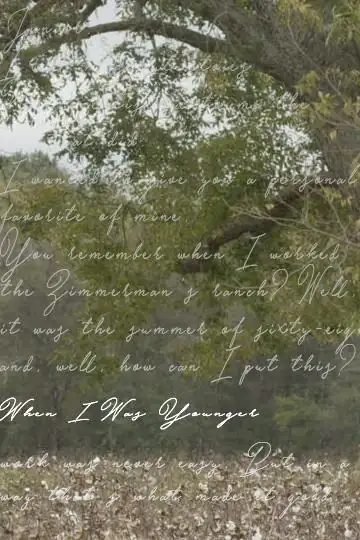 I wanted to give you a personal
favorite of mine.
You remember when I worked
the Zimmerman s ranch? Well
it was the summer of sixty-eig
and, well, how can I put this?
When I Was Younger
work was never easy. But in a
way that s what made it good.